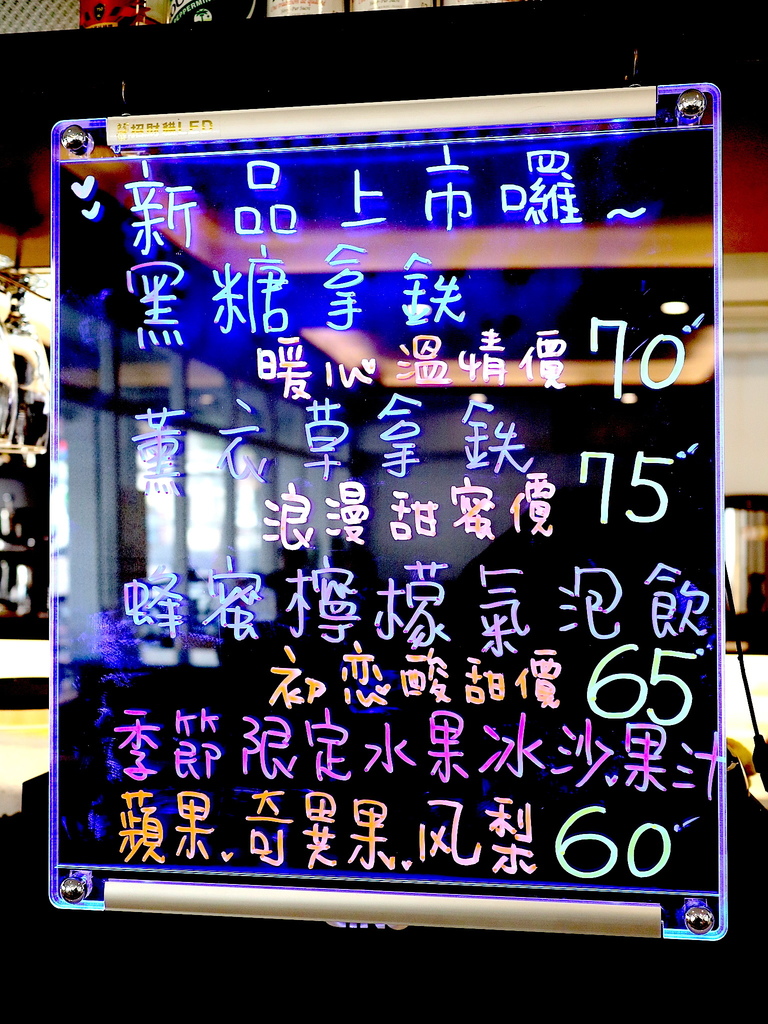 招財貓LED
新品上市囉~
黑糖拿鐵
暖心溫情價 70
薰衣草拿鐵
浪漫甜蜜價 75
蜂蜜檸檬氣泡飲
初恋酸甜價 65
季節限定水果冰沙、果汁
蘋果、奇異果、风梨 60